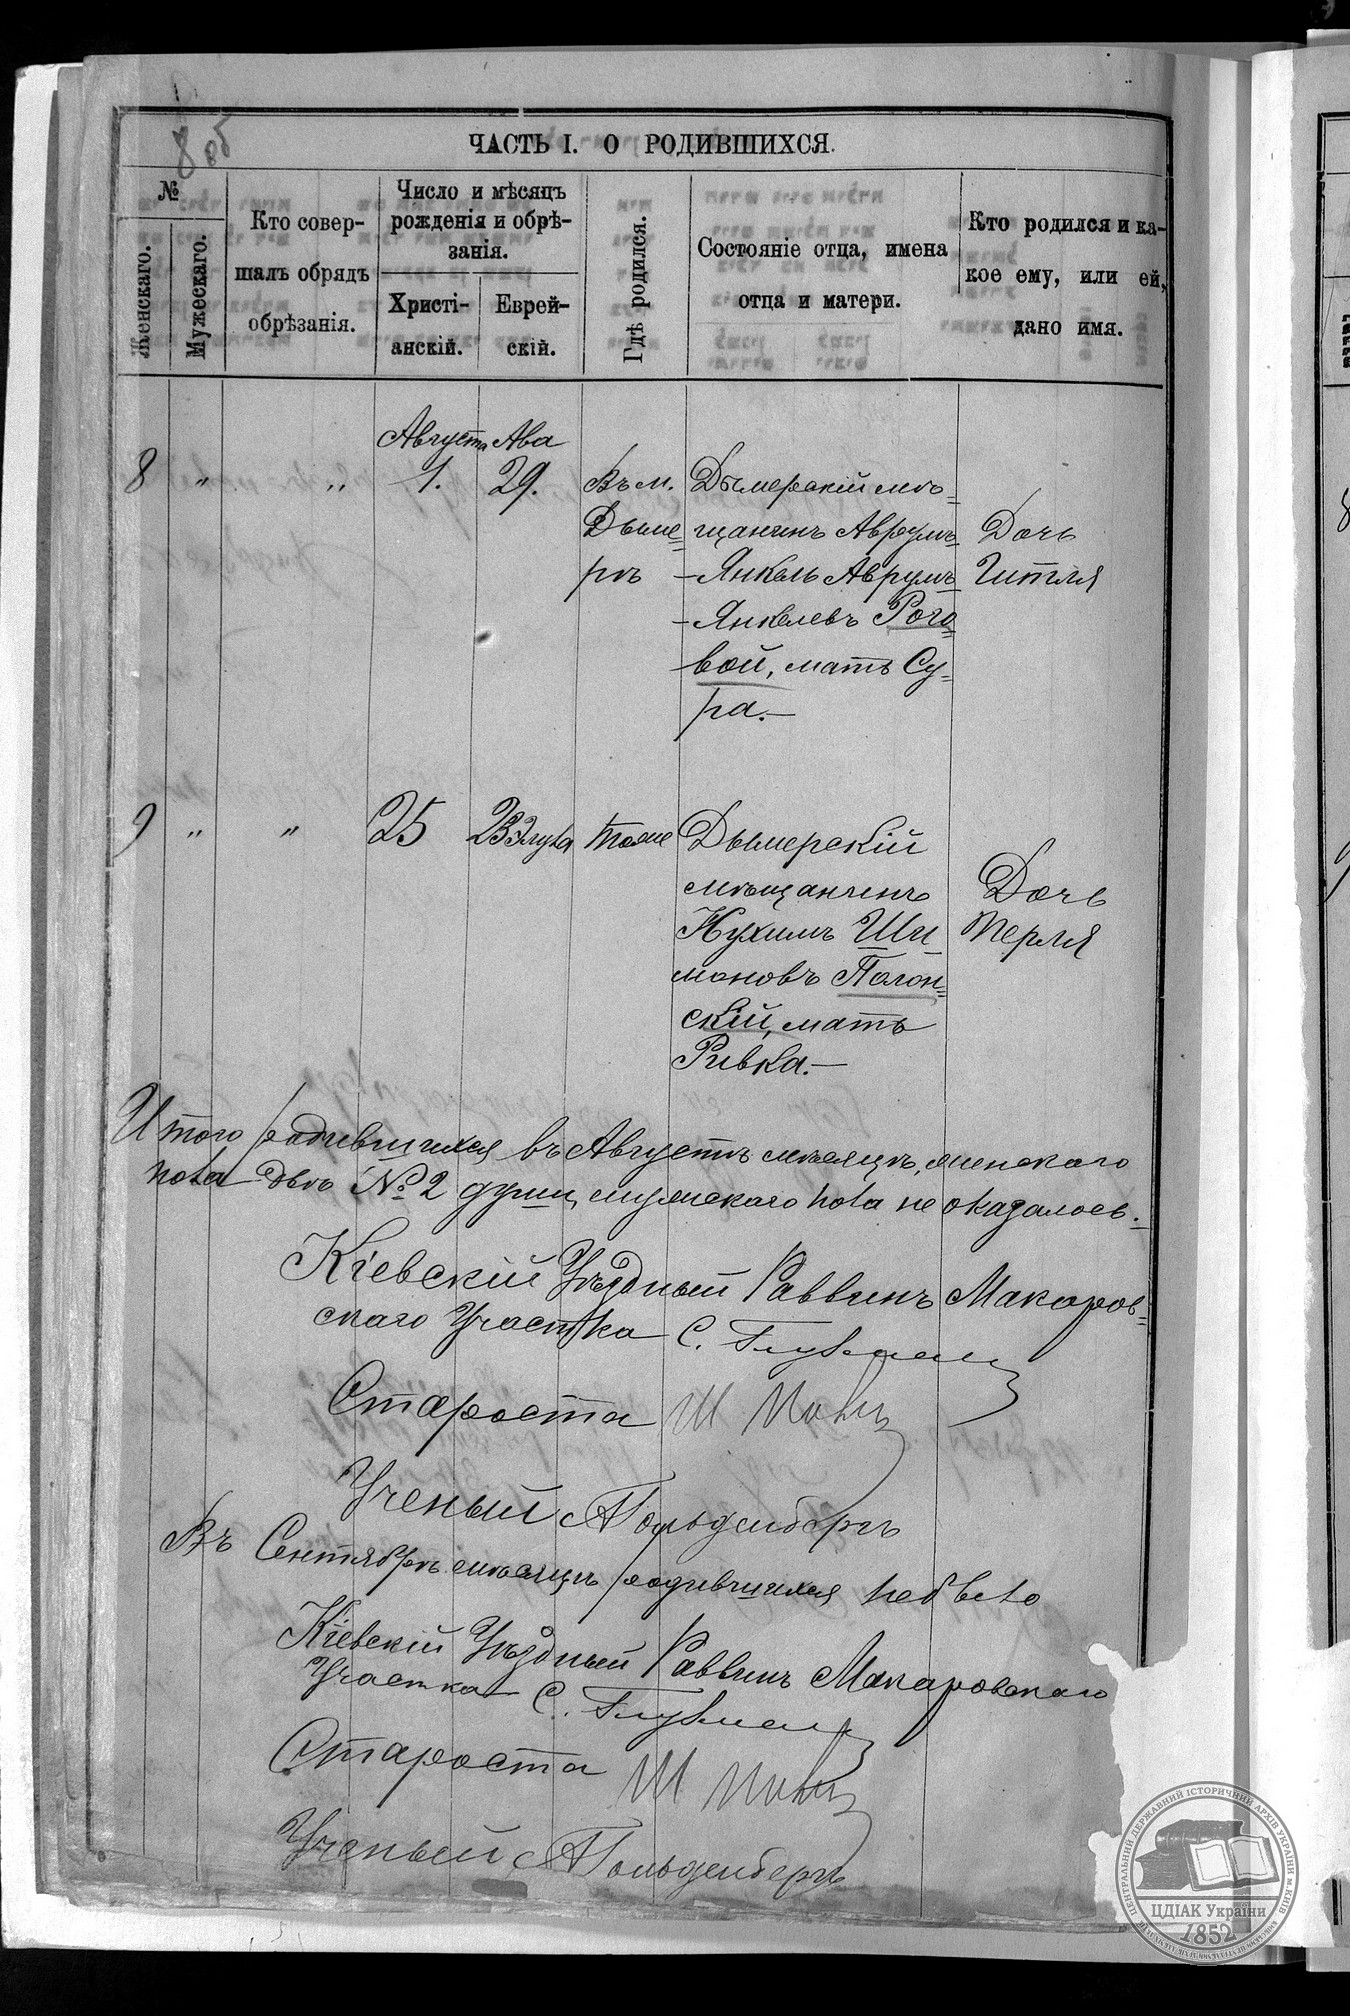 8 об
ЧАСТЬ I. О РОДИВШИХСЯ.
№
Женскаго.
Мужескаго.
Кто совер-
шалъ обрядъ
обрѣзанія.
Число и мѣсяцъ
рожденія и обрѣ-
занія.
Христі-
анскій.
Еврей-
скій.
Гдѣ родился.
Состояніе отца, имена
отца и матери.
Кто родился и ка-
кое ему, или ей,
дано имя.
Августа Ава
8 " " 1. 29. Въ м. Дымерскій мѣ=
Дыме= щанинъ Аврумъ Дочь
рѣ -Янкель Аврумъ Гитля
-Янкелевъ Рого=
вой, мать Су=
ра.-
9 " " 25 23 Элула тоже Дымерскій
мѣщанинъ Дочь
Нухимъ Ши Перля
моновъ Полон=
скій, мать
Ривка.-
Итого родившихся въ Августѣ мѣсяцѣ, женскаго
пола двѣ № 2 души, мужескаго пола не оказалось.
Кіевскій Уѣздный Раввинъ Макаров=
скаго Участка С.
Староста Ш
Ученый А Гольденбергъ
Въ Сентябрѣ мѣсяцѣ родившихся небыло
Кіевскій Уѣздный Раввинъ Макаровскаго
Участка С.
Староста Ш
Ученый А Гольденбергъ
ЦЕНТРАЛЬНИЙ ДЕРЖАВНИЙ ІСТОРИЧНИЙ АРХІВ УКРАЇНИ М.КИЇВ
ЦДІАК України
1852